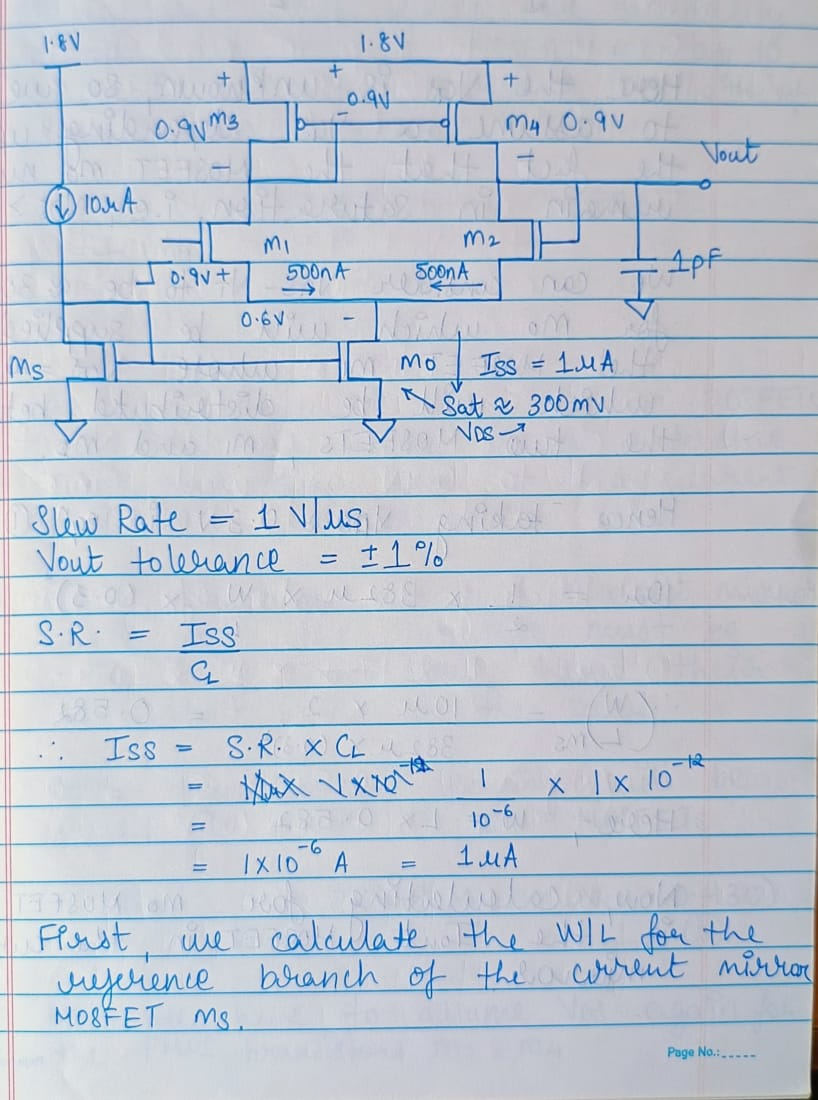 1.8V 1.8V
+ + +
0.9V
-
0.9V M3 M4 0.9V
-
Vout
10μA
M1 M2
1pF
0.9V + 500nA 500nA
→ ←
0.6V -
M5 M0 ISS = 1μA
Sat ≈ 300mV
VDS →
Slew Rate = 1 V/μs
Vout tolerance = ±1%
S.R. = ISS
CL
∴ ISS = S.R. x CL
= 1 x 1 x 10⁻¹²
= 10⁻⁶
= 1x10⁻⁶ A = 1μA
First, we calculate the W/L for the
reference branch of the current mirror
MOSFET M5.
Page No.: